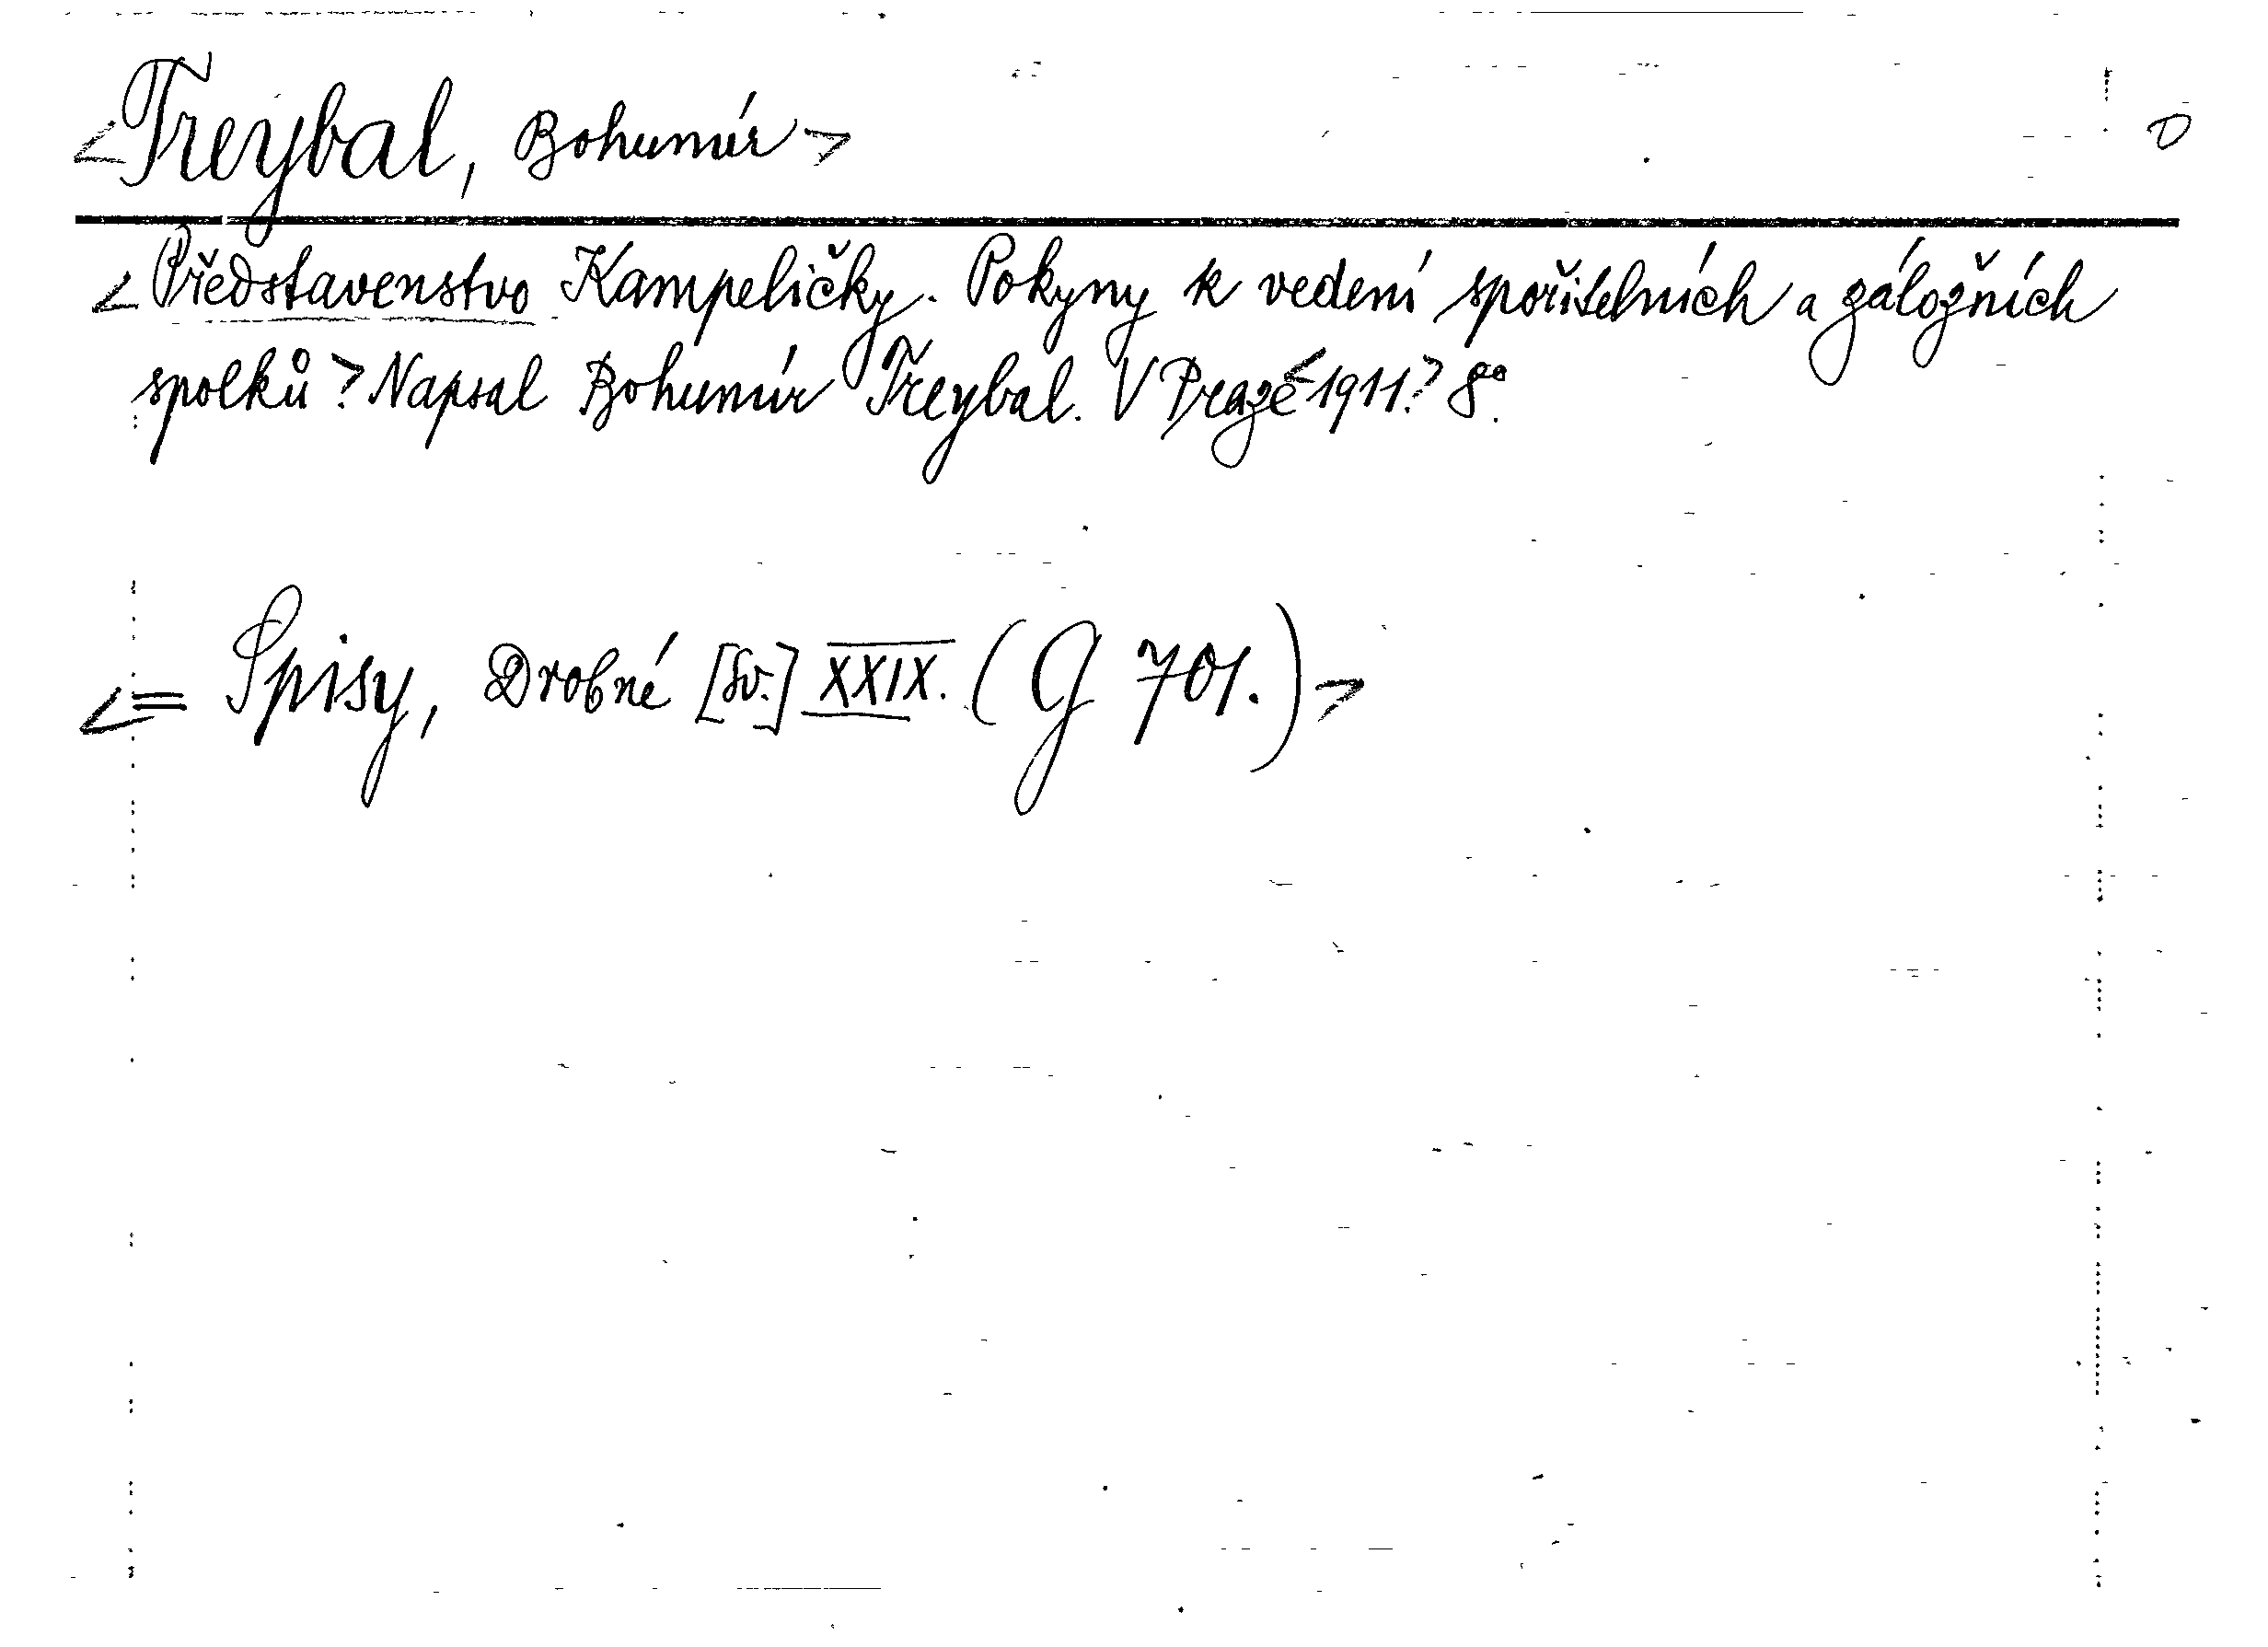 <Treybal, Bohumír>
<Představenstvo Kampeličky. Pokyny k vedení spořitelních a záložních
spolků> Napsal Bohumír Třeybal. V Praze <1911.> 8°.
<= Spisy, Drobné [Sv.] XXIX. (G 701.)>